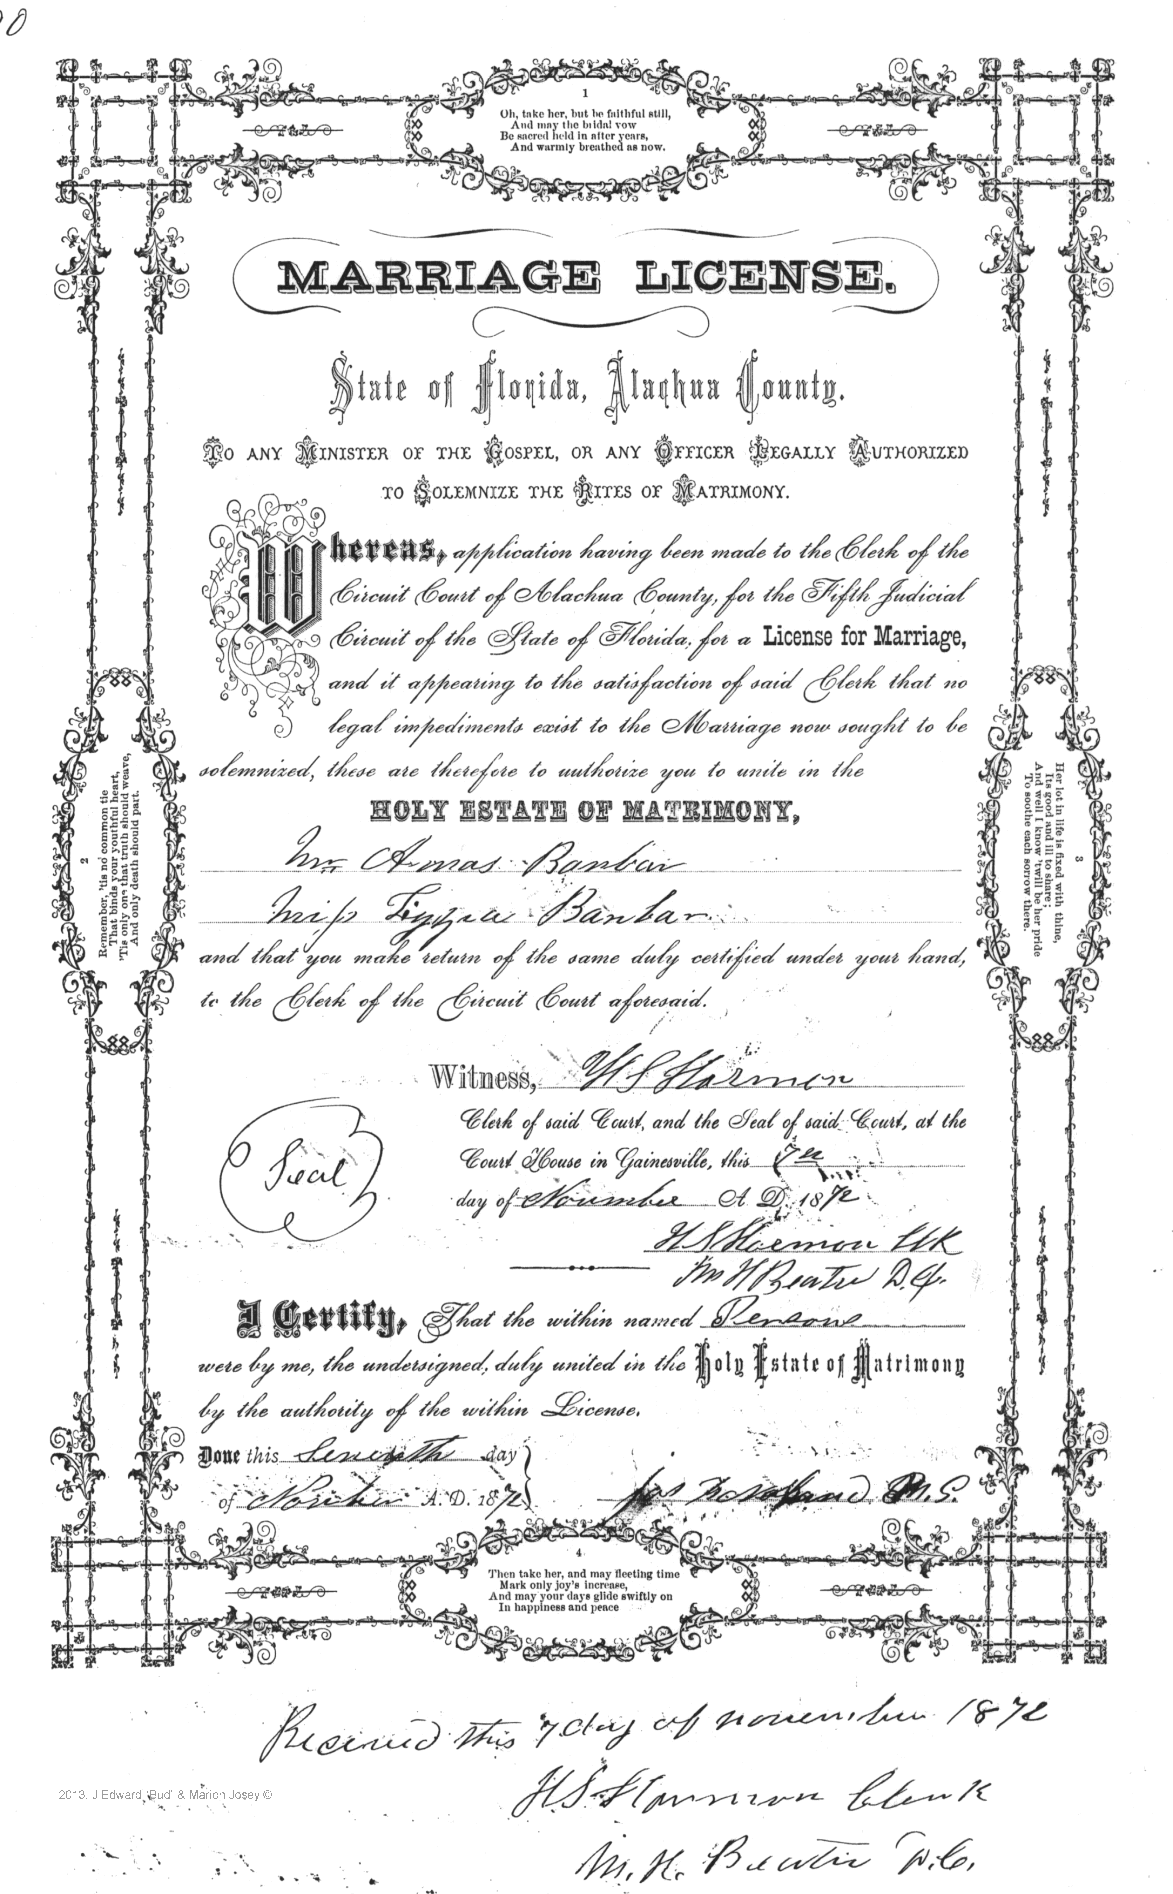 1
Oh, take her, but be faithful still,
And may the bridal vow
Be sacred held in after years,
And warmly breathed as now.
MARRIAGE LICENSE.
State of Florida, Alachua County.
TO ANY MINISTER OF THE GOSPEL, OR ANY OFFICER LEGALLY AUTHORIZED
TO SOLEMNIZE THE RITES OF MATRIMONY.
Whereas, application having been made to the Clerk of the
Circuit Court of Alachua County, for the Fifth Judicial
Circuit of the State of Florida, for a License for Marriage,
and it appearing to the satisfaction of said Clerk that no
legal impediments exist to the Marriage now sought to be
solemnized, these are therefore to authorize you to unite in the
HOLY ESTATE OF MATRIMONY,
Mr. Amas Banbar
Miss Banbar
and that you make return of the same duly certified under your hand,
to the Clerk of the Circuit Court aforesaid.
2
Remember, 'tis no common tie
That binds your youthful heart,
'Tis only one that truth should weave,
And only death should part.
3
Her lot in life is fixed with thine,
Its good and ill to share;
And well I know 'twill be her pride
To soothe each sorrow there.
Witness, H S Harmon
Clerk of said Court, and the Seal of said Court, at the
Court House in Gainesville, this 7th
day of November A. D. 1872
Seal
H S Harmon Clk
H D.C.
I Certify, That the within named Persons
were by me, the undersigned, duly united in the Holy Estate of Matrimony
by the authority of the within License.
Done this Seventh day
of A. D. 1872
M.G.
4
Then take her, and may fleeting time
Mark only joy's increase,
And may your days glide swiftly on
In happiness and peace
Received this 7 day of november 1872
H.S. Harmon Clerk
M. H. D.C.
2013. J Edward 'Bud' & Marion Josey ©